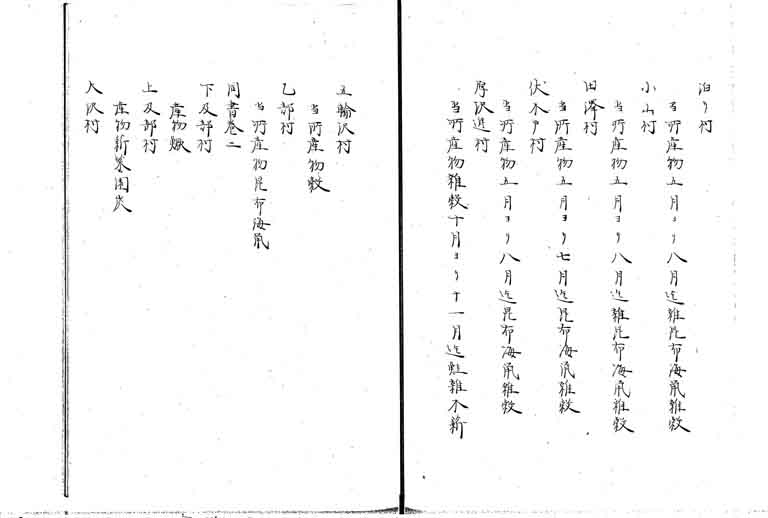 泊り村
当所産物五月ヨリ八月迄雑昆布海鼠雑穀
小山村
当所産物五月ヨリ八月迄雑昆布海鼠雑穀
田澤村
当所産物五月ヨリ七月迄昆布海鼠雑穀
伏木戸村
当所産物五月ヨリ八月迄昆布海鼠雑穀
厚沢辺村
当所産物雑穀十月ヨリ十一月迄鮭雑木薪
五輪沢村
当所産物穀
乙部村
当所産物昆布海鼠
同書巻二
下及部村
産物
上及部村
産物薪炭
大沢村